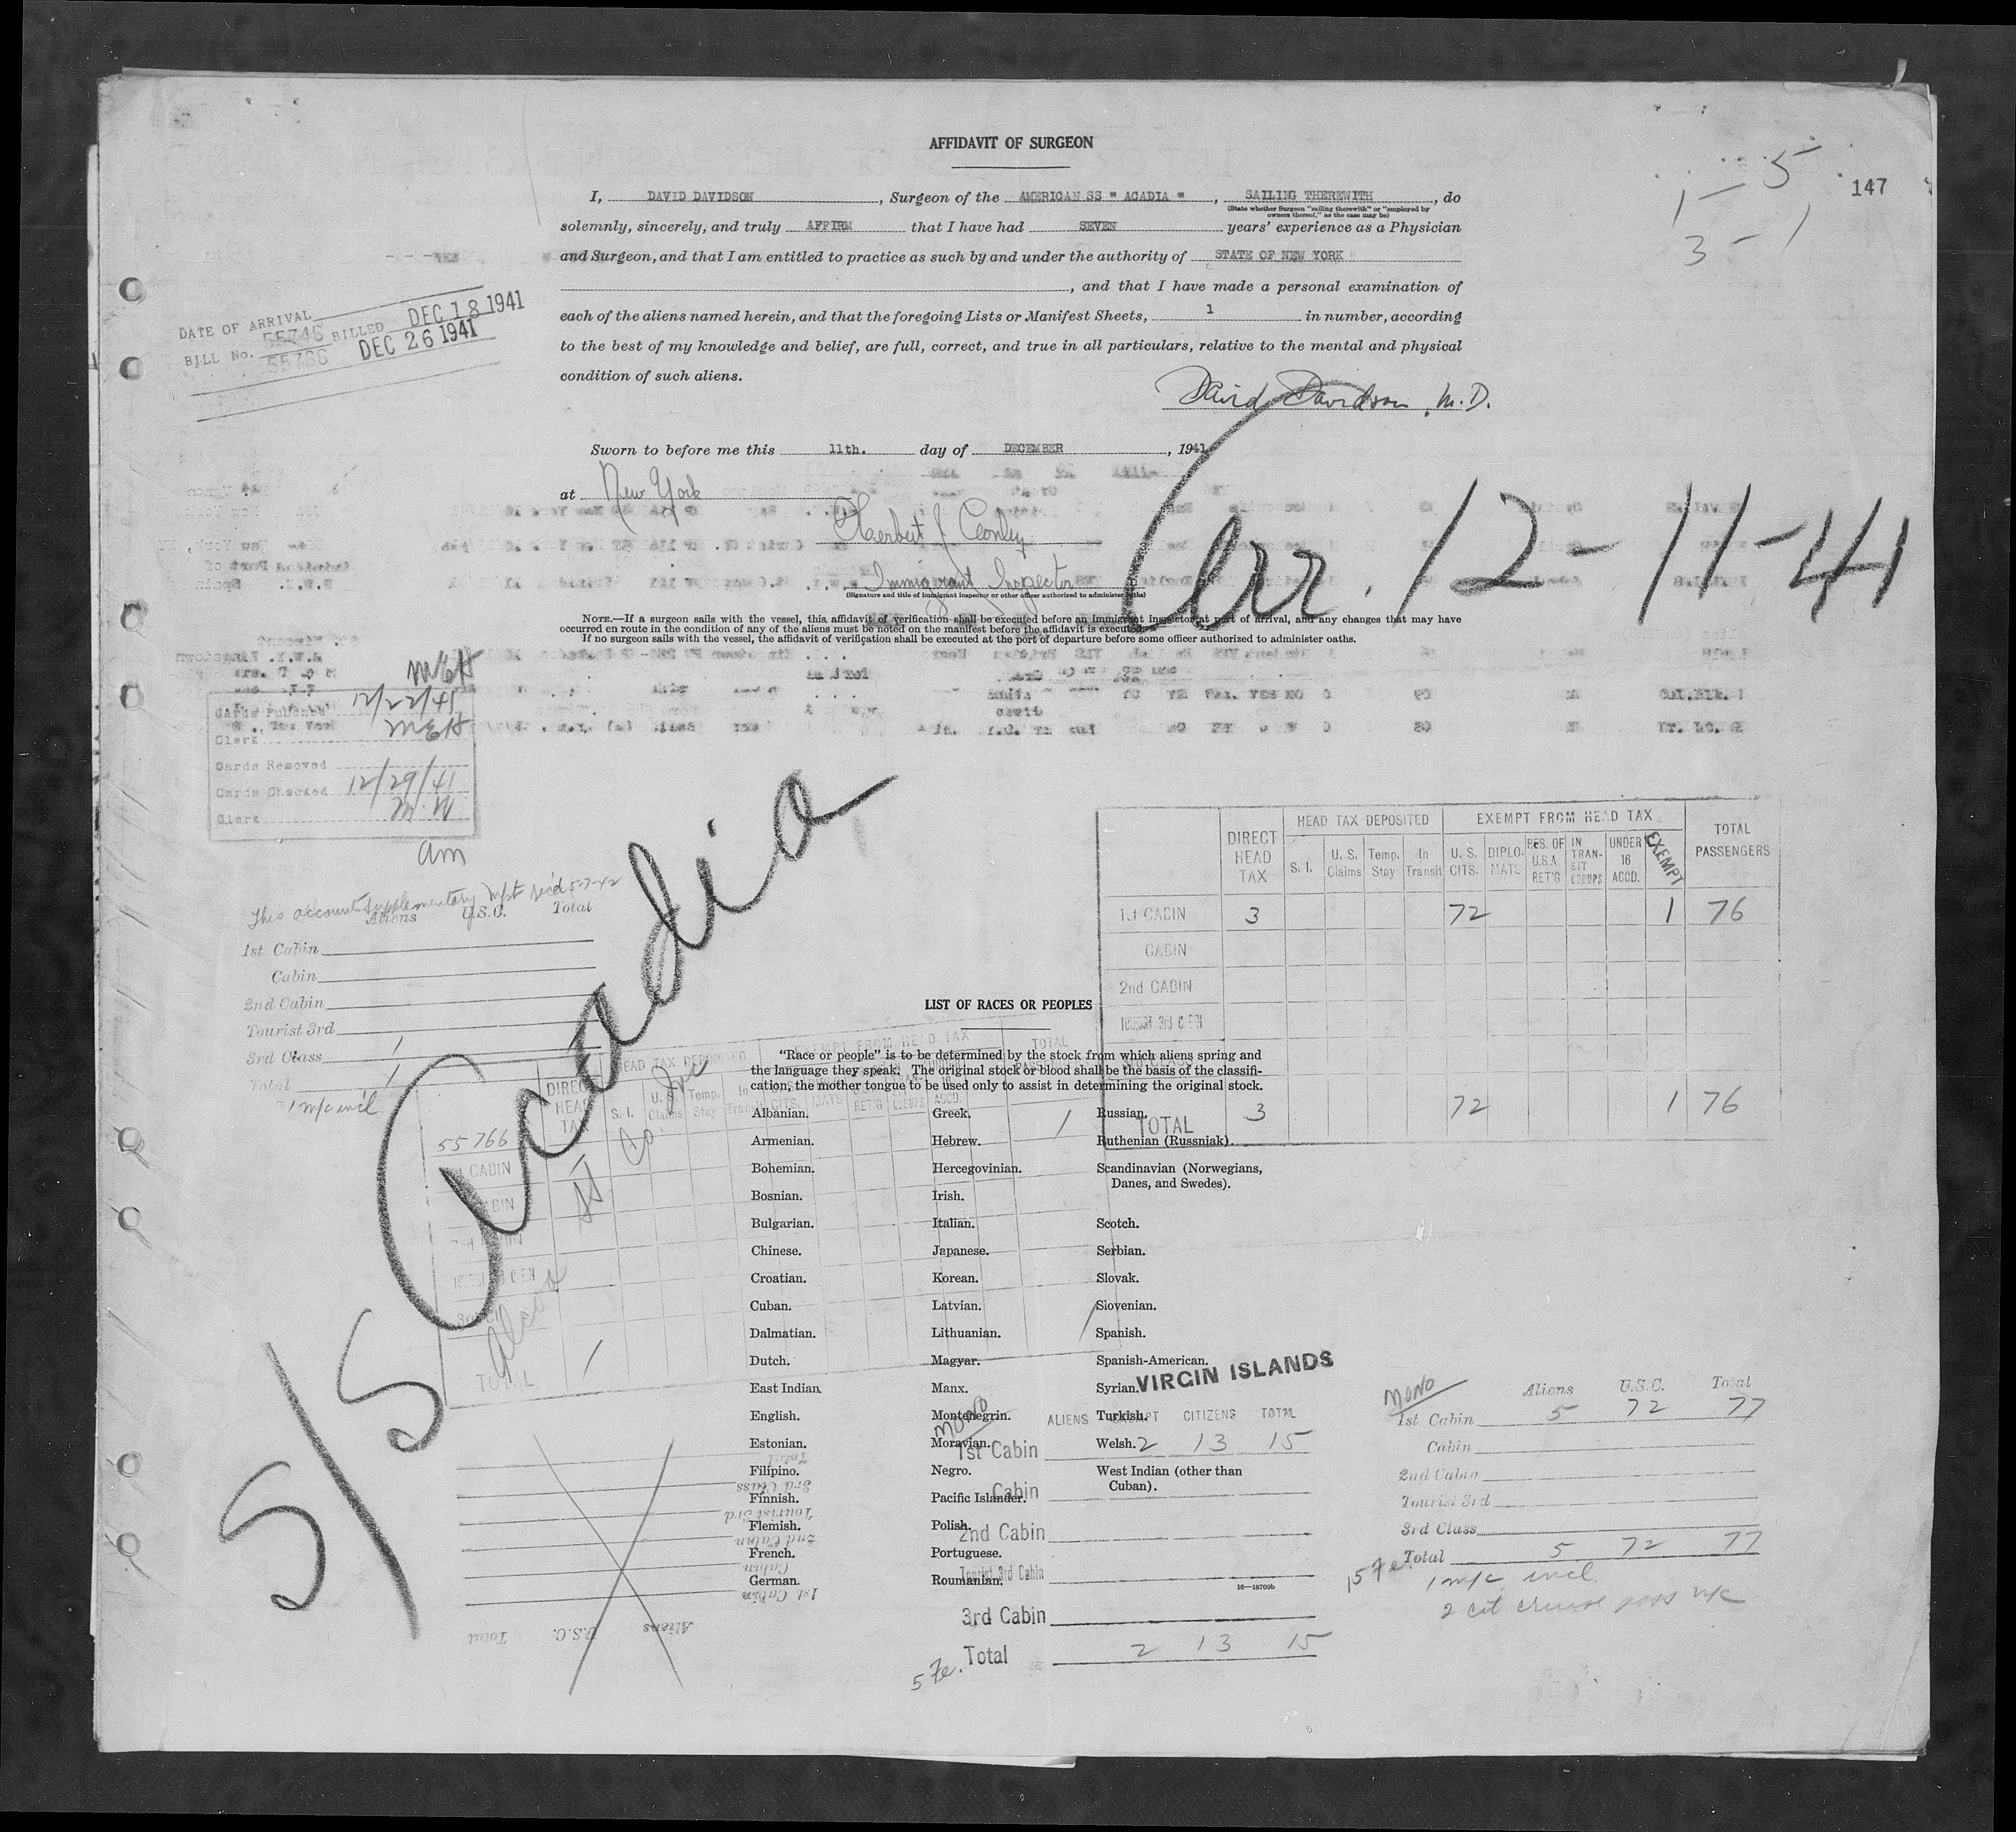 AFFIDAVIT OF SURGEON
147
1 - 5
3 - 1
I, DAVID DAVIDSON, Surgeon of the AMERICAN SS " ACADIA ", SAILING THEREWITH, do
(State whether Surgeon "sailing therewith" or "employed by
owners thereof," as the case may be)
solemnly, sincerely, and truly AFFIRM that I have had SEVEN years' experience as a Physician
and Surgeon, and that I am entitled to practice as such by and under the authority of STATE OF NEW YORK
, and that I have made a personal examination of
each of the aliens named herein, and that the foregoing Lists or Manifest Sheets, 1 in number, according
to the best of my knowledge and belief, are full, correct, and true in all particulars, relative to the mental and physical
condition of such aliens.
DATE OF ARRIVAL
BILL No. 55746 BILLED DEC 18 1941
55766 DEC 26 1941
David Davidson, M.D.
Sworn to before me this 11th. day of DECEMBER, 1941
at New York
Herbert J Conley
Immigrant Inspector
(Signature and title of immigrant inspector or other officer authorized to administer oaths)
Arr. 12-11-41
NOTE.—If a surgeon sails with the vessel, this affidavit of verification shall be executed before an immigrant inspector at port of arrival, and any changes that may have
occurred en route in the condition of any of the aliens must be noted on the manifest before the affidavit is executed.
If no surgeon sails with the vessel, the affidavit of verification shall be executed at the port of departure before some officer authorized to administer oaths.
MEH
Cards Punched 12/22/41
Clerk MEH
Cards Removed
Cards Checked 12/29/41
Clerk M.W
am
S/S Acadia
DIRECT HEAD TAX
HEAD TAX DEPOSITED
S. I. U. S. Claims Temp. Stay In Transit
EXEMPT FROM HEAD TAX
U. S. CITS. DIPLOMATS RES. OF U.S.A RET'G IN TRANSIT GROUPS UNDER 16 ACCD. EXEMPT
TOTAL PASSENGERS
1st CABIN 3 72 1 76
CABIN
2nd CABIN
TOURIST 3rd CABIN
TOTAL 3 72 1 76
This account Supplementary Mfst rec'd 5-7-42
Aliens U.S.C. Total
1st Cabin
Cabin
2nd Cabin
Tourist 3rd
3rd Class 1
Total 1
1 m/c incl.
55766
TOTAL 1
LIST OF RACES OR PEOPLES
"Race or people" is to be determined by the stock from which aliens spring and
the language they speak. The original stock or blood shall be the basis of the classifi-
cation, the mother tongue to be used only to assist in determining the original stock.
Albanian.
Armenian.
Bohemian.
Bosnian.
Bulgarian.
Chinese.
Croatian.
Cuban.
Dalmatian.
Dutch.
East Indian.
English.
Estonian.
Filipino.
Finnish.
Flemish.
French.
German.
Greek.
Hebrew.
Hercegovinian.
Irish.
Italian.
Japanese.
Korean.
Latvian.
Lithuanian.
Magyar.
Manx.
Montenegrin.
Moravian.
Negro.
Pacific Islander.
Polish.
Portuguese.
Roumanian.
Russian.
Ruthenian (Russniak).
Scandinavian (Norwegians,
Danes, and Swedes).
Scotch.
Serbian.
Slovak.
Slovenian.
Spanish.
Spanish-American.
Syrian.
Turkish.
Welsh.
West Indian (other than
Cuban).
16—18709b
VIRGIN ISLANDS
MONO
ALIENS EXEMPT CITIZENS TOTAL
1st Cabin 2 13 15
Cabin
2nd Cabin
Tourist 3rd Cabin
3rd Cabin
Total 2 13 15
5 Fe.
MONO
Aliens U.S.C. Total
1st Cabin 5 72 77
Cabin
2nd Cabin
Tourist 3rd
3rd Class
Total 5 72 77
15 Fe.
1 m/c incl.
2 cit cruise pass m/c
Aliens U.S.C. Total
1st Cabin
Cabin
2nd Cabin
Tourist 3rd
3rd Class
Total